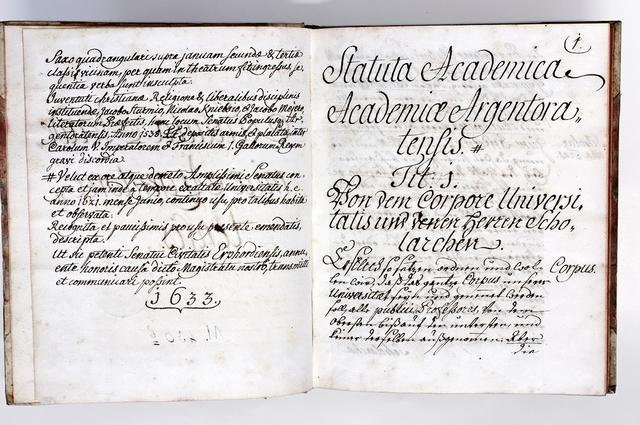 Saxo quadrangulari supra januam secundæ & tertiæ
classi vicinam, per quam in theatrum fit ingressus se,
quentia verba sunt insculpta.
Juventuti christianæ, Religione & liberalibus disciplinis
instituendæ, Jacobo Sturmio, Nicolao Kniebsio, & Jacobo Mejero,
literatorum Præfectis, hunc locum Senatus Populusq; Ar-
gentinensis. Anno 1538. depositis armis, & placata inter
Carolum V. Imperatorem & Franciscum I. Gallorum Regem
gravi discordia
# Velut ex ore atque demeto Amplissimi Senatus con
cepta et jam inde a tempore exaltatæ Universitatis h. e.
anno 1621. mense Junio, continuo usu pro talibus habita
et observata.
Recognita, et paucissimis pro usu præsente emendatis,
descripta.
Ut sic petenti Senatui Civitatis Erphordiensis, annu,
ente honoris causa dicto Magistratu nostro, transmitti
et communicari possint.
1633.
1.
Statuta Academica
Academiæ Argentora,
tensis. #
Tit 1.
Von dem Corpore Universi,
tatis und denen Herren Scho,
larchen.
Corpus.
Erstlich so setzen ordnen und wol-
len wir, daß das gantze Corpus unserer
Universitat seyn und genennet werden
soll, alle publici Professores, von dem
obersten biß auf den untersten, und
keiner derselben außgenommen. Aber
die